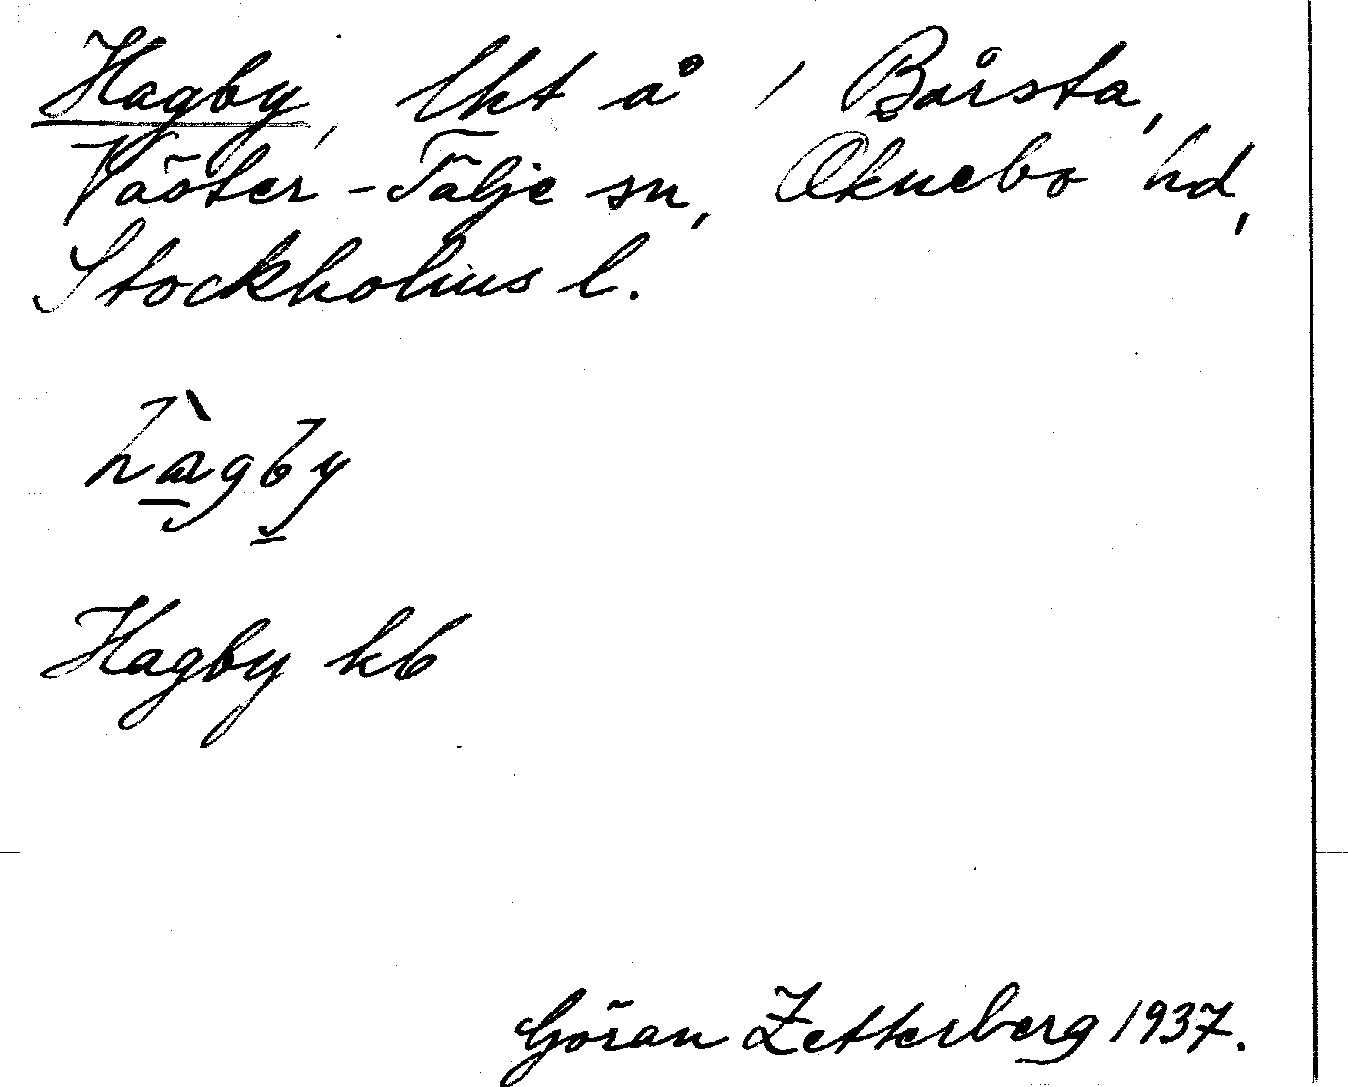 Hagby, lht å / Bårsta,
Väster-Tälje sn, Öknebo hd,
Stockholms l.
hàgby
Hagby kb
Göran Zetterberg 1937.